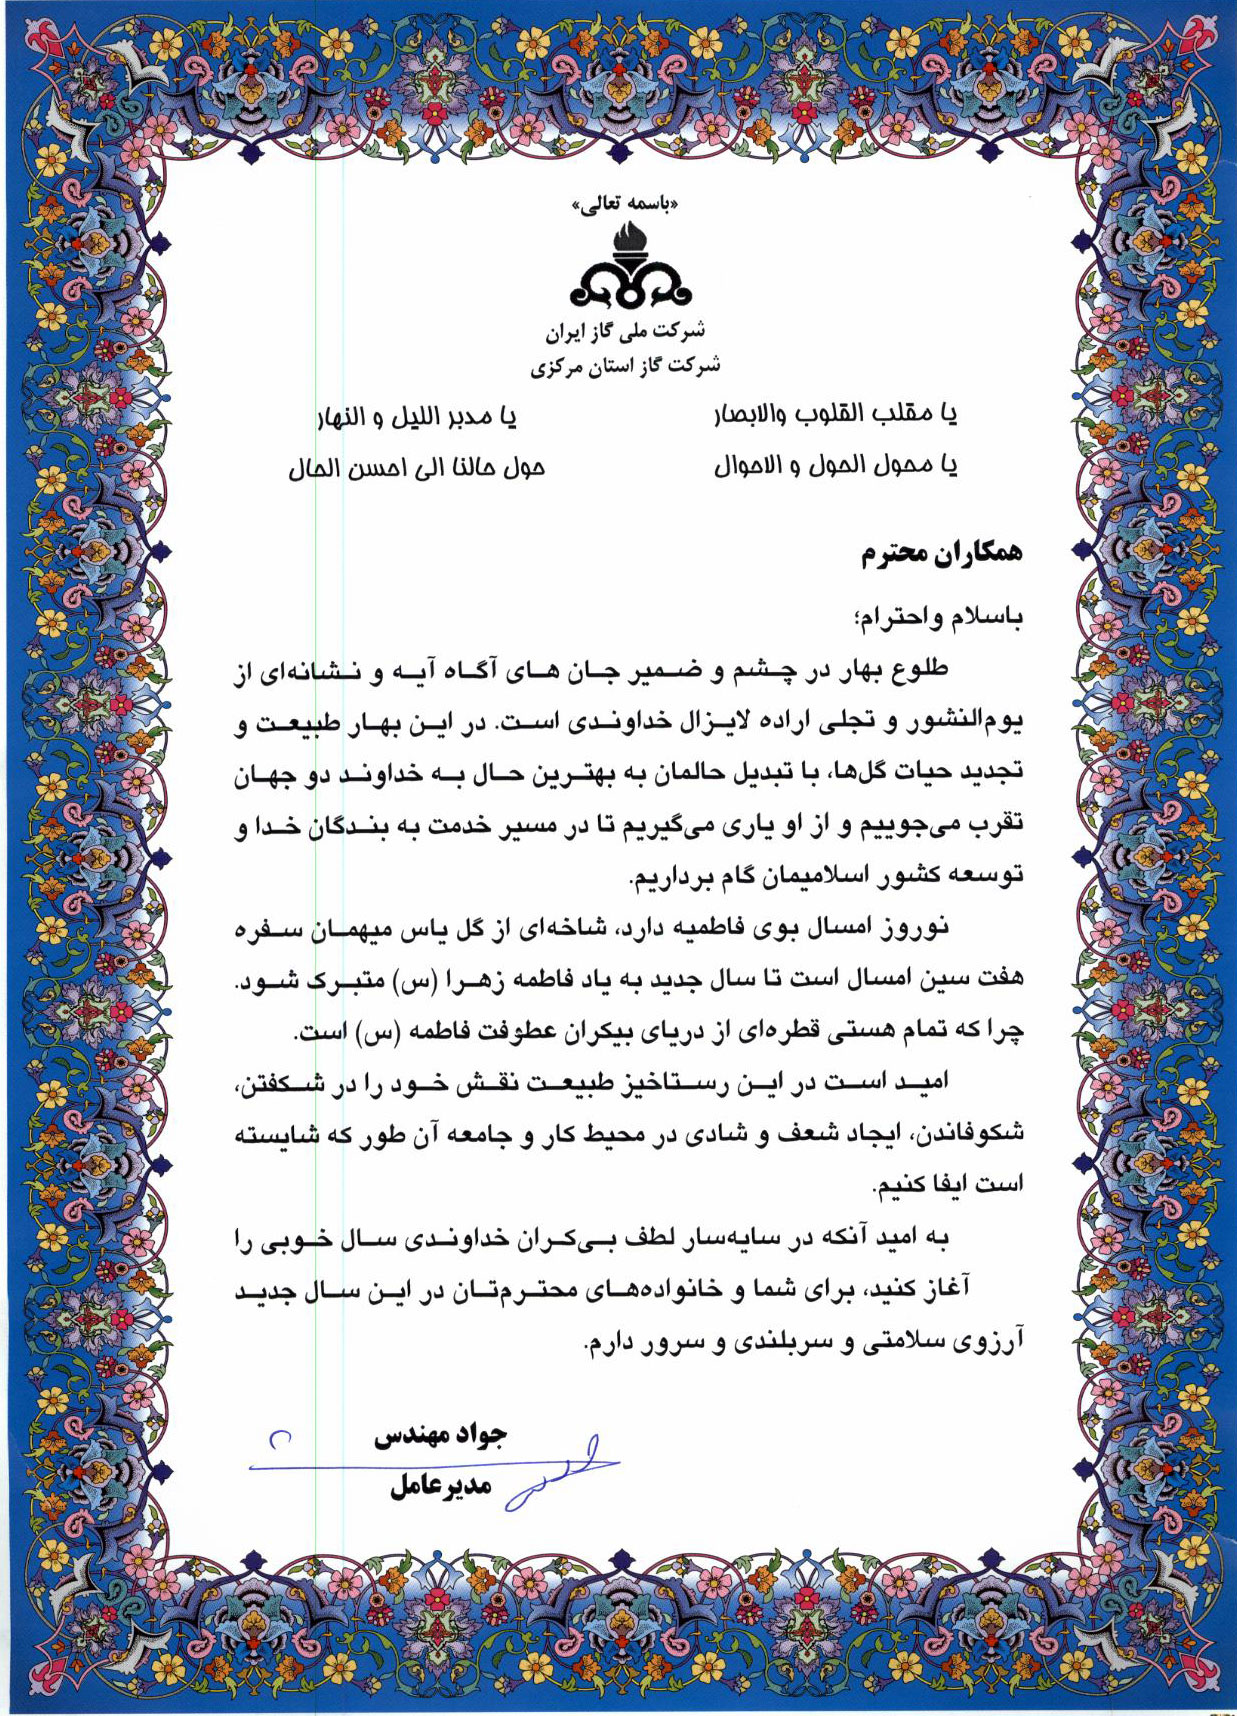 «باسمه تعالی»
شرکت ملی گاز ایران
شرکت گاز استان مرکزی
یا مقلب القلوب والابصار یا مدبر اللیل و النهار
یا محول الحول و الاحوال حول حالنا الی احسن الحال
همکاران محترم
باسلام و احترام؛
طلوع بهار در چشم و ضمیر جان های آگاه آیه و نشانه‌ای از
یوم‌النشور و تجلی اراده لایزال خداوندی است. در این بهار طبیعت و
تجدید حیات گل‌ها، با تبدیل حالمان به بهترین حال به خداوند دو جهان
تقرب می‌جوییم و از او یاری می‌گیریم تا در مسیر خدمت به بندگان خدا و
توسعه کشور اسلامیمان گام برداریم.
نوروز امسال بوی فاطمیه دارد، شاخه‌ای از گل یاس میهمان سفره
هفت سین امسال است تا سال جدید به یاد فاطمه زهرا (س) متبرک شود.
چرا که تمام هستی قطره‌ای از دریای بیکران عطوفت فاطمه (س) است.
امید است در این رستاخیز طبیعت نقش خود را در شکفتن،
شکوفاندن، ایجاد شعف و شادی در محیط کار و جامعه آن طور که شایسته
است ایفا کنیم.
به امید آنکه در سایه‌سار لطف بی‌کران خداوندی سال خوبی را
آغاز کنید، برای شما و خانواده‌های محترم‌تان در این سال جدید
آرزوی سلامتی و سربلندی و سرور دارم.
جواد مهندس
مدیرعامل